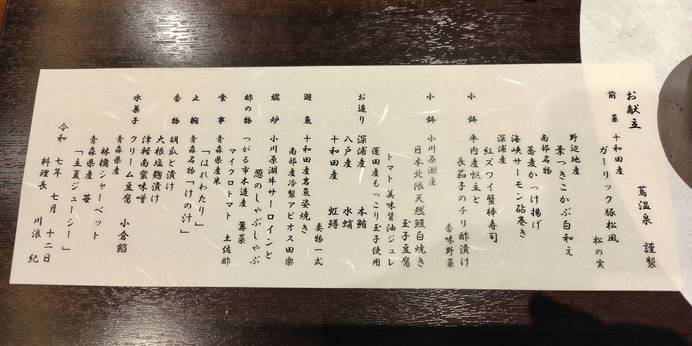 お献立
蔦温泉 謹製
前菜 十和田産
ガーリック豚松風 松の実
野辺地産
葉つきこかぶ白和え
南部名物
蕎麦かっけ揚げ
海峡サーモン砧巻き
深浦産
紅ズワイ蟹棒寿司
小鉢 平内産帆立と
長茄子のチリ酢漬け
香味野菜
小鉢 小川原湖産
日本北限天然鰻白焼き
玉子豆腐
トマト美味醤油ジュレ
蓬田産もっこり玉子使用
お造り 深浦産 本鮪
八戸産 水蛸
十和田産 虹鱒
妻物一式
遊魚 十和田産岩魚姿焼き
南部産冷製アピオス田楽
焜炉 小川原湖牛サーロインと
葱のしゃぶしゃぶ
酢の物 つがる市木造産 蓴菜
マイクロトマト 土佐酢
食事 青森県産米
「はれわたり」
止椀 青森名物「けの汁」
香物 胡瓜と漬け
大根塩麹漬け
津軽南蛮味噌
水菓子 クリーム豆腐 小倉餡
青森県産
林檎シャーベット
青森県産 苺
「立夏ジューシー」
令和 七年 七月 十二日
料理長 川浪 紀